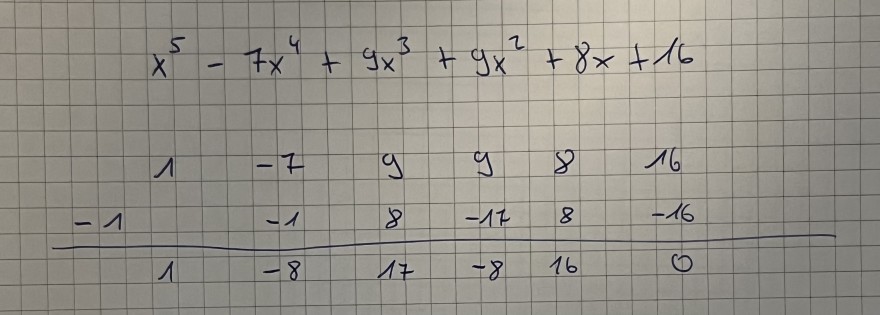 x⁵ - 7x⁴ + 9x³ + 9x² + 8x + 16
1 -7 9 9 8 16
-1 -1 8 -17 8 -16
1 -8 17 -8 16 0